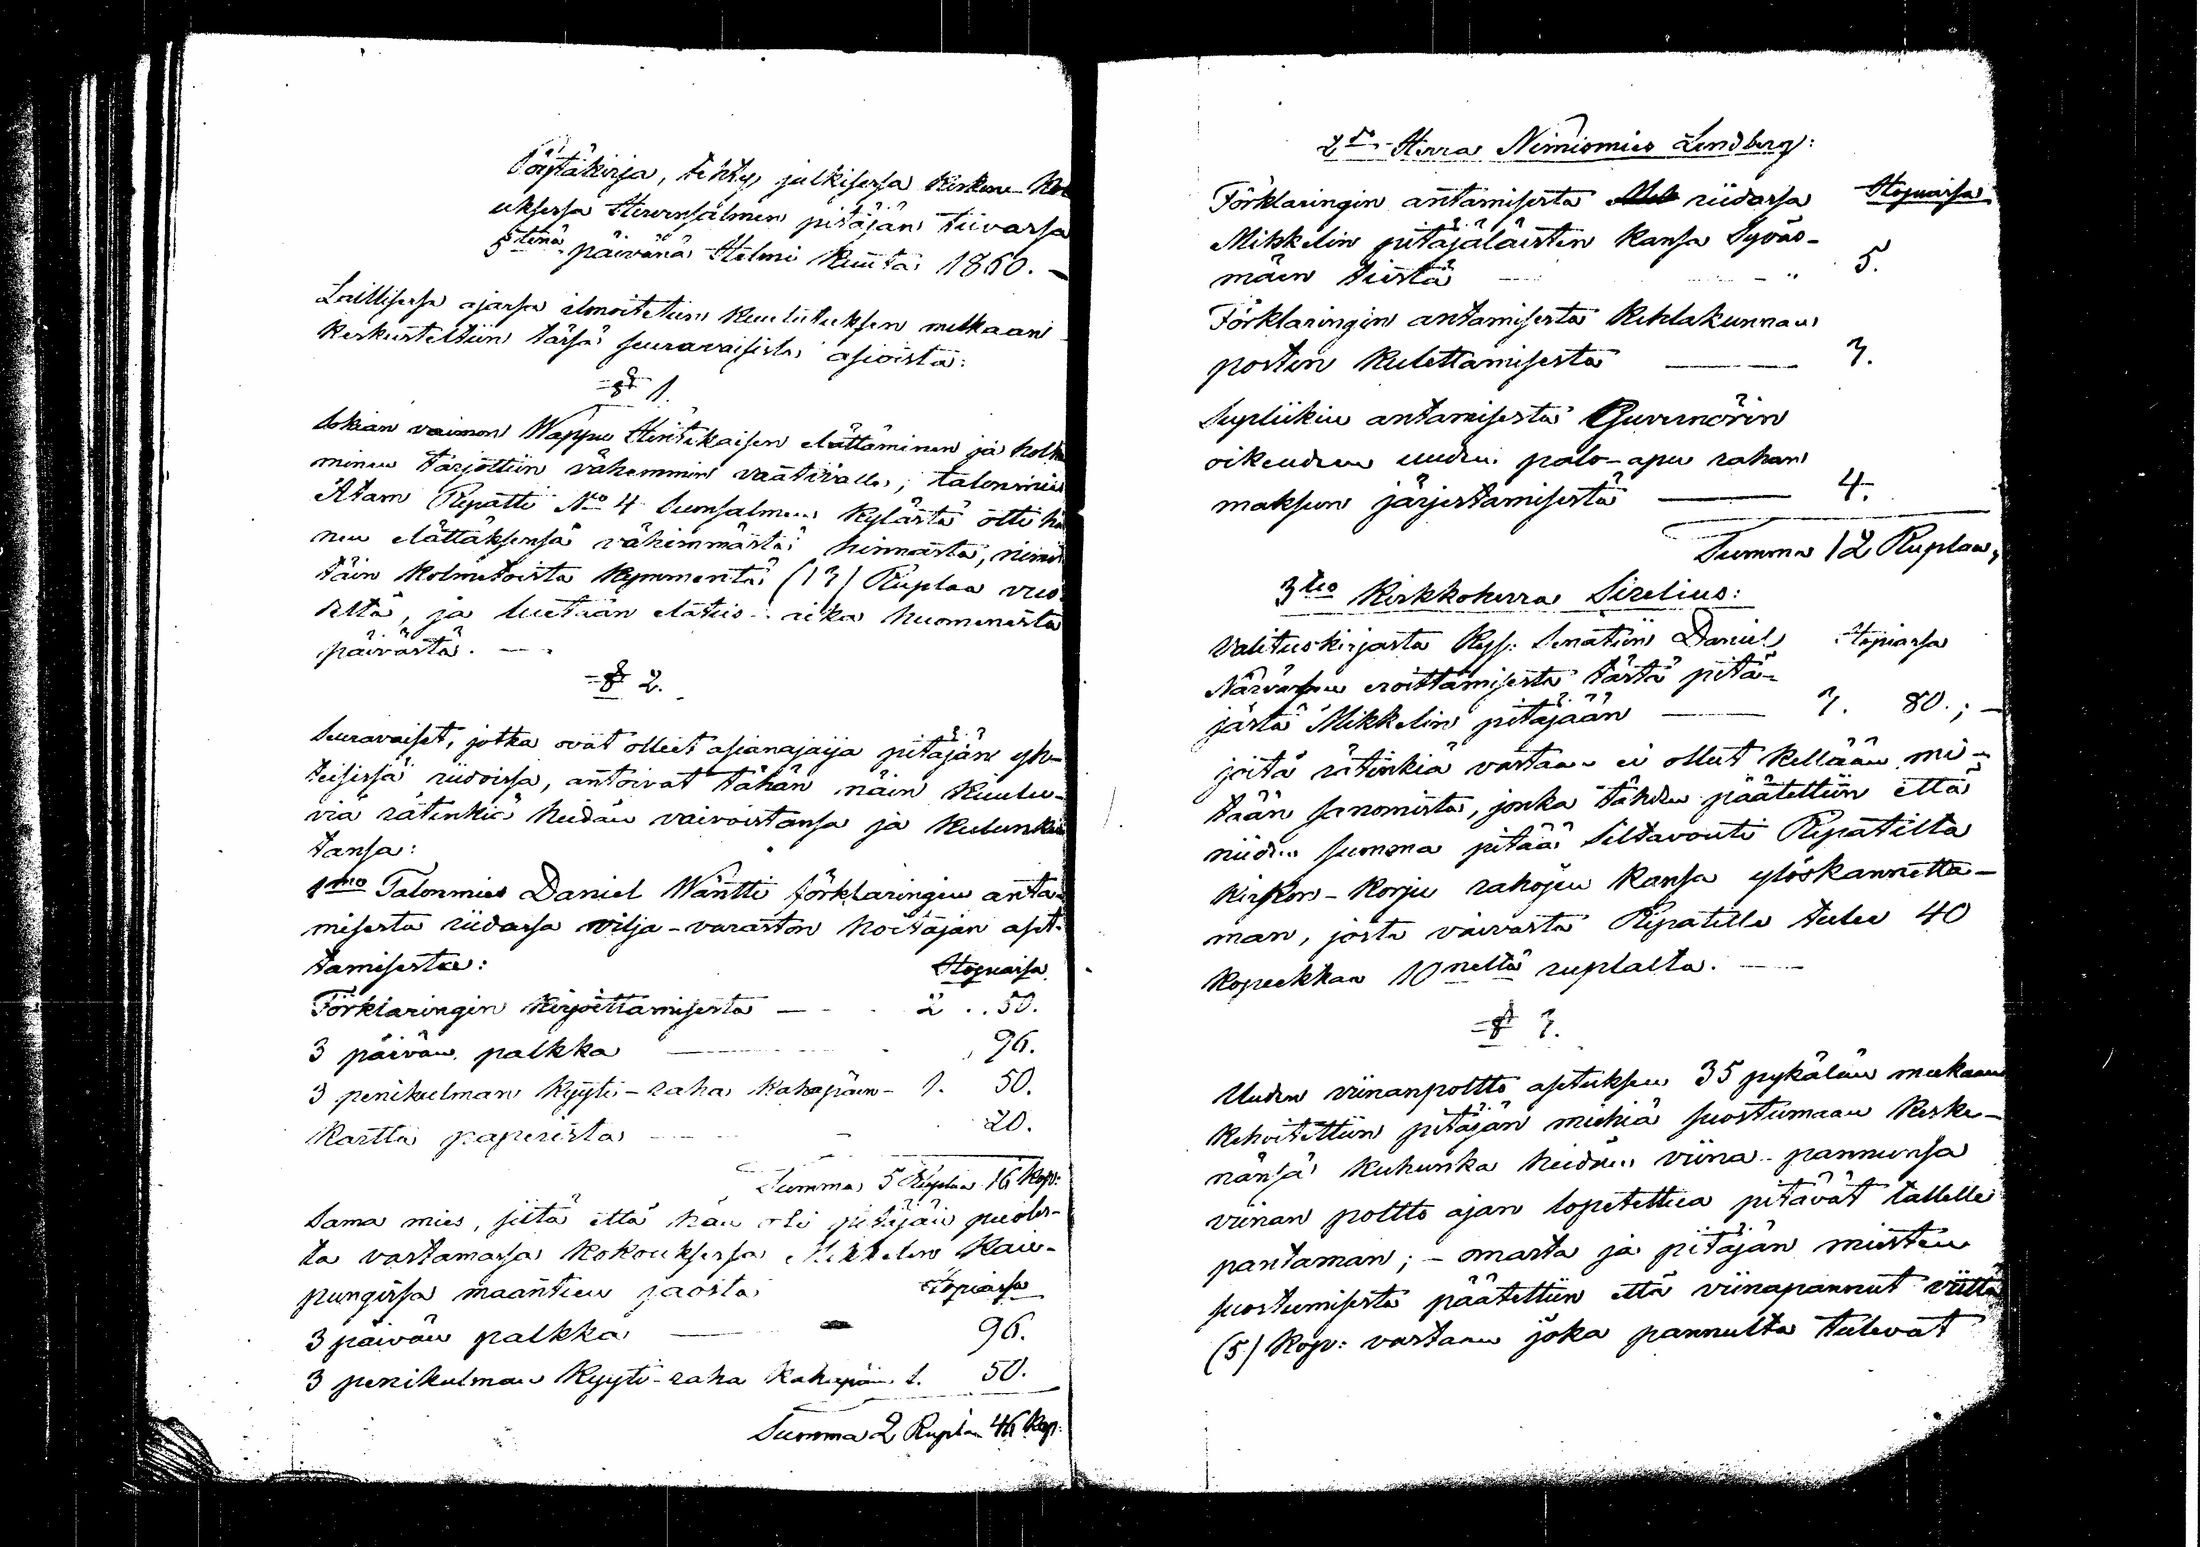 Pöytäkirja, tehty julkisessa Kirkon-Ko-
uksessa Hirvensalmen pitäjän tiivassa
5tenä päivänä Helmi Kuuta 1860. -
Laillisessa ajassa ilmoitetun Kuulutuksen mukaan
Keskusteltiin tässä seuravaisista asioista:
§ 1.
Sokian vaimon Wappu Hintikaisen elättäminen ja holho-
minen tarjottiin vähemmin vaativalle; talonmies
Adam Repatti No 4 Suonsalmen Kylästä otti hä
nen elättäksensä vähimmästä hinnasta, nimit
täin Kolmetoista Kymmentä (13) Ruplaa vuo-
delta, ja luetaan elatus-aika huomenesta
päivästä. -
§ 2.
Seuravaiset, jotka ovat olleet asianajajia pitäjän yh-
teisissä riidoissa, antoivat tähän näin Kuulu-
via rätinkiä heidän vaivoistansa ja Kulunkis
tansa:
1mo Talonmies Daniel Wäntti förklaringin anta-
misesta riidassa vilja-varaston hoitajan aset-
tamisesta:
Hopiaissa
Förklaringin Kirjoittamisesta - 2 .. 50.
3 päivän palkka - 96.
3 penikulman Kyyti-raha Kahapäin - 1. 50.
Kartta paperista - 20.
Summa 5 Ruplaa 16 Kop:
Sama mies, siitä että hän oli pitäjän puoles-
ta vastamassa Kokouksessa Mikkelin Kau-
pungissa maantien jaosta
Hopiassa
3 päivän palkka - 96.
3 penikulman Kyyti-raha Kahapäin 1. 50.
Summa 2 Ruplaa 46 Kop:
2do Herra Nimismies Lindberg:
Förklaringin antamisesta riidassa Hopiaissa
Mikkelin pitäjäläisten Kansa Syväs-
mäen tiestä - 5.
Förklaringin antamisesta Kihlakunnan
postin Kulettamisesta - 3.
Supliikin antamisesta Guvernörin
oikeuden uuden palo-apu rahan
maksun järjestamisestä - 4.
Summa 12 Ruplaa,
3tio Kirkkoherra Sirelius:
Valituskirjasta Kejs: Senatiin Daniel Hopiassa
Närväsen eroittamisesta tästä pitä-
jästä Mikkelin pitäjään - 3. 80.; -
joita rätinkiä vastaan ei ollut Kellään mi-
tään sanomista, jonka tähden päätettiin että
niiden summa pitää Siltavouti Repatilta
Kirkon-Korju rahojen Kansa ylöskannetta-
man, josta vaivasta Repatille tulee 40
Kopeekkaa 10neltä ruplalta. -
§ 3.
Uuden viinanpoltto asetuksen 35 pykälän mukaan
Kehoitettiin pitäjän miehiä suostumaan Keske-
nänsä Kuhunka heidän viina-pannunsa
viinan poltto ajan lopetettua pitävät tallelle
pantaman; - omasta ja pitäjän miesten
suostumisesta päätettiin että viinapannut viittä
(5) Kop: vastaan joka pannulta tulevat